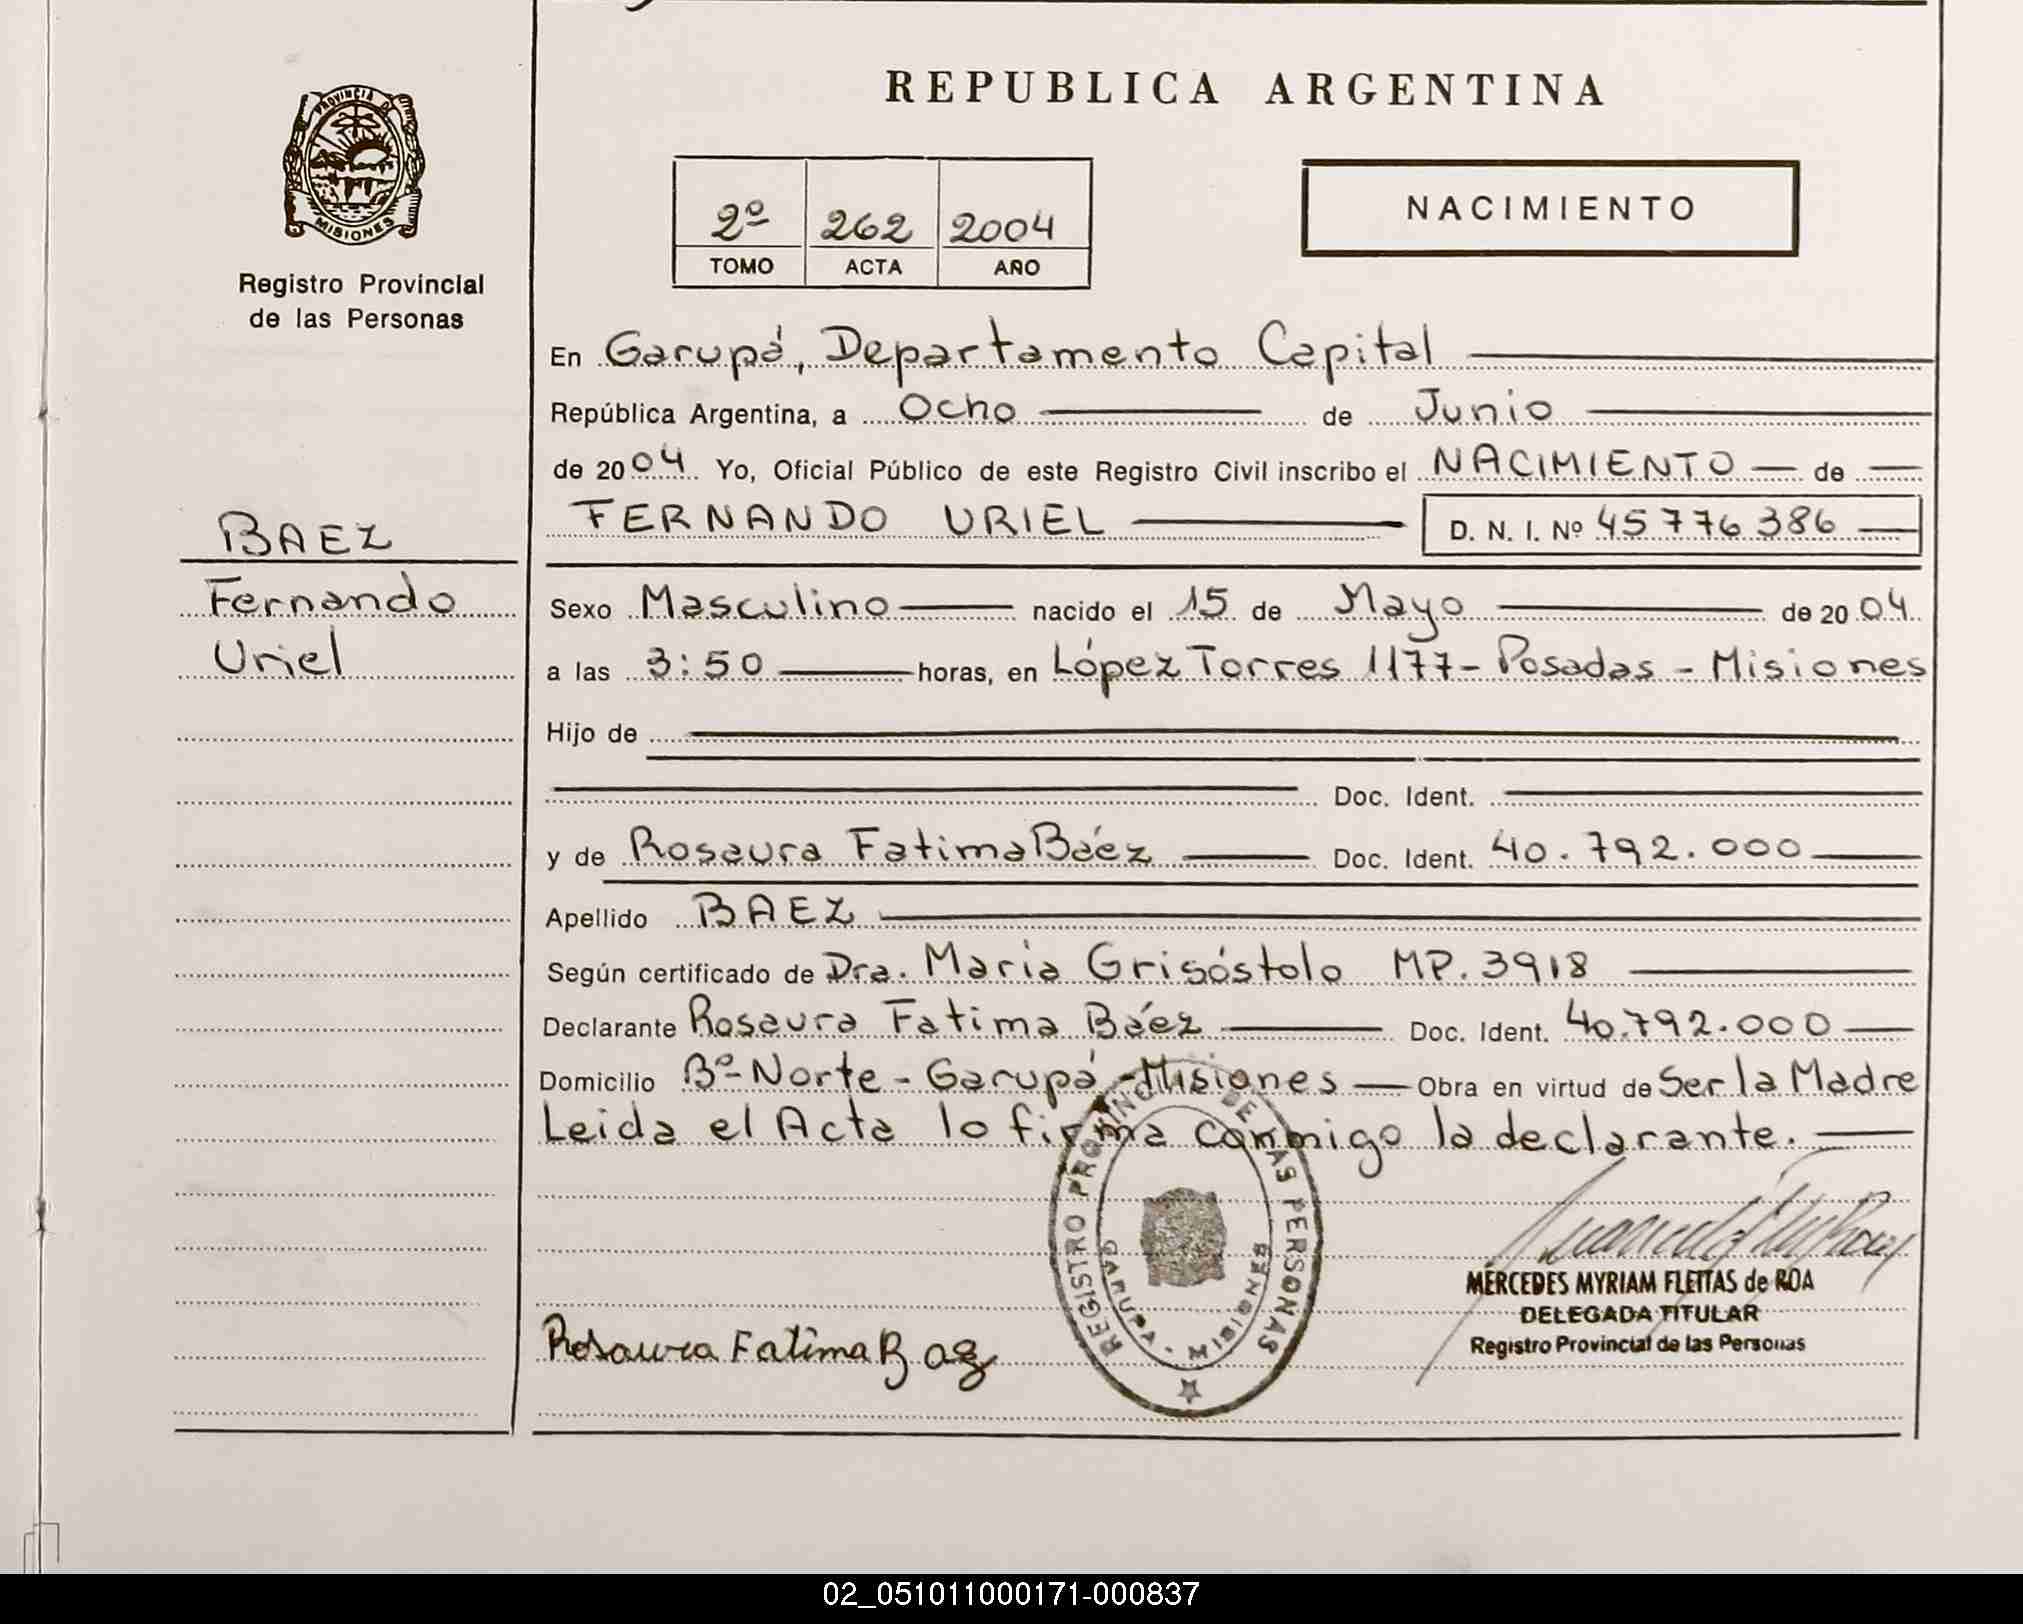 REPUBLICA ARGENTINA
PROVINCIA D
MISIONES
Registro Provincial
de las Personas
2º 262 2004
TOMO ACTA AÑO
NACIMIENTO
En Garupá, Departamento Capital
República Argentina, a Ocho de Junio
de 2004 Yo, Oficial Público de este Registro Civil inscribo el NACIMIENTO de
FERNANDO URIEL D. N. I. Nº 45776386
BAEZ
Fernando
Uriel
Sexo Masculino nacido el 15 de Mayo de 2004
a las 3:50 horas, en López Torres 1177- Posadas - Misiones
Hijo de
Doc. Ident.
y de Rosaura Fatima Báez Doc. Ident. 40.792.000
Apellido BAEZ
Según certificado de Dra. Maria Grisóstolo MP. 3918
Declarante Rosaura Fatima Báez Doc. Ident. 40.792.000
Domicilio Bº Norte - Garupá - Misiones Obra en virtud de Ser la Madre
Leida el Acta lo firma conmigo la declarante.
REGISTRO PROVINC DE LAS PERSONAS
GARUPA - MISIONES
MERCEDES MYRIAM FLEITAS de ROA
DELEGADA TITULAR
Registro Provincial de las Personas
Rosaura Fatima Baez
02_051011000171-000837